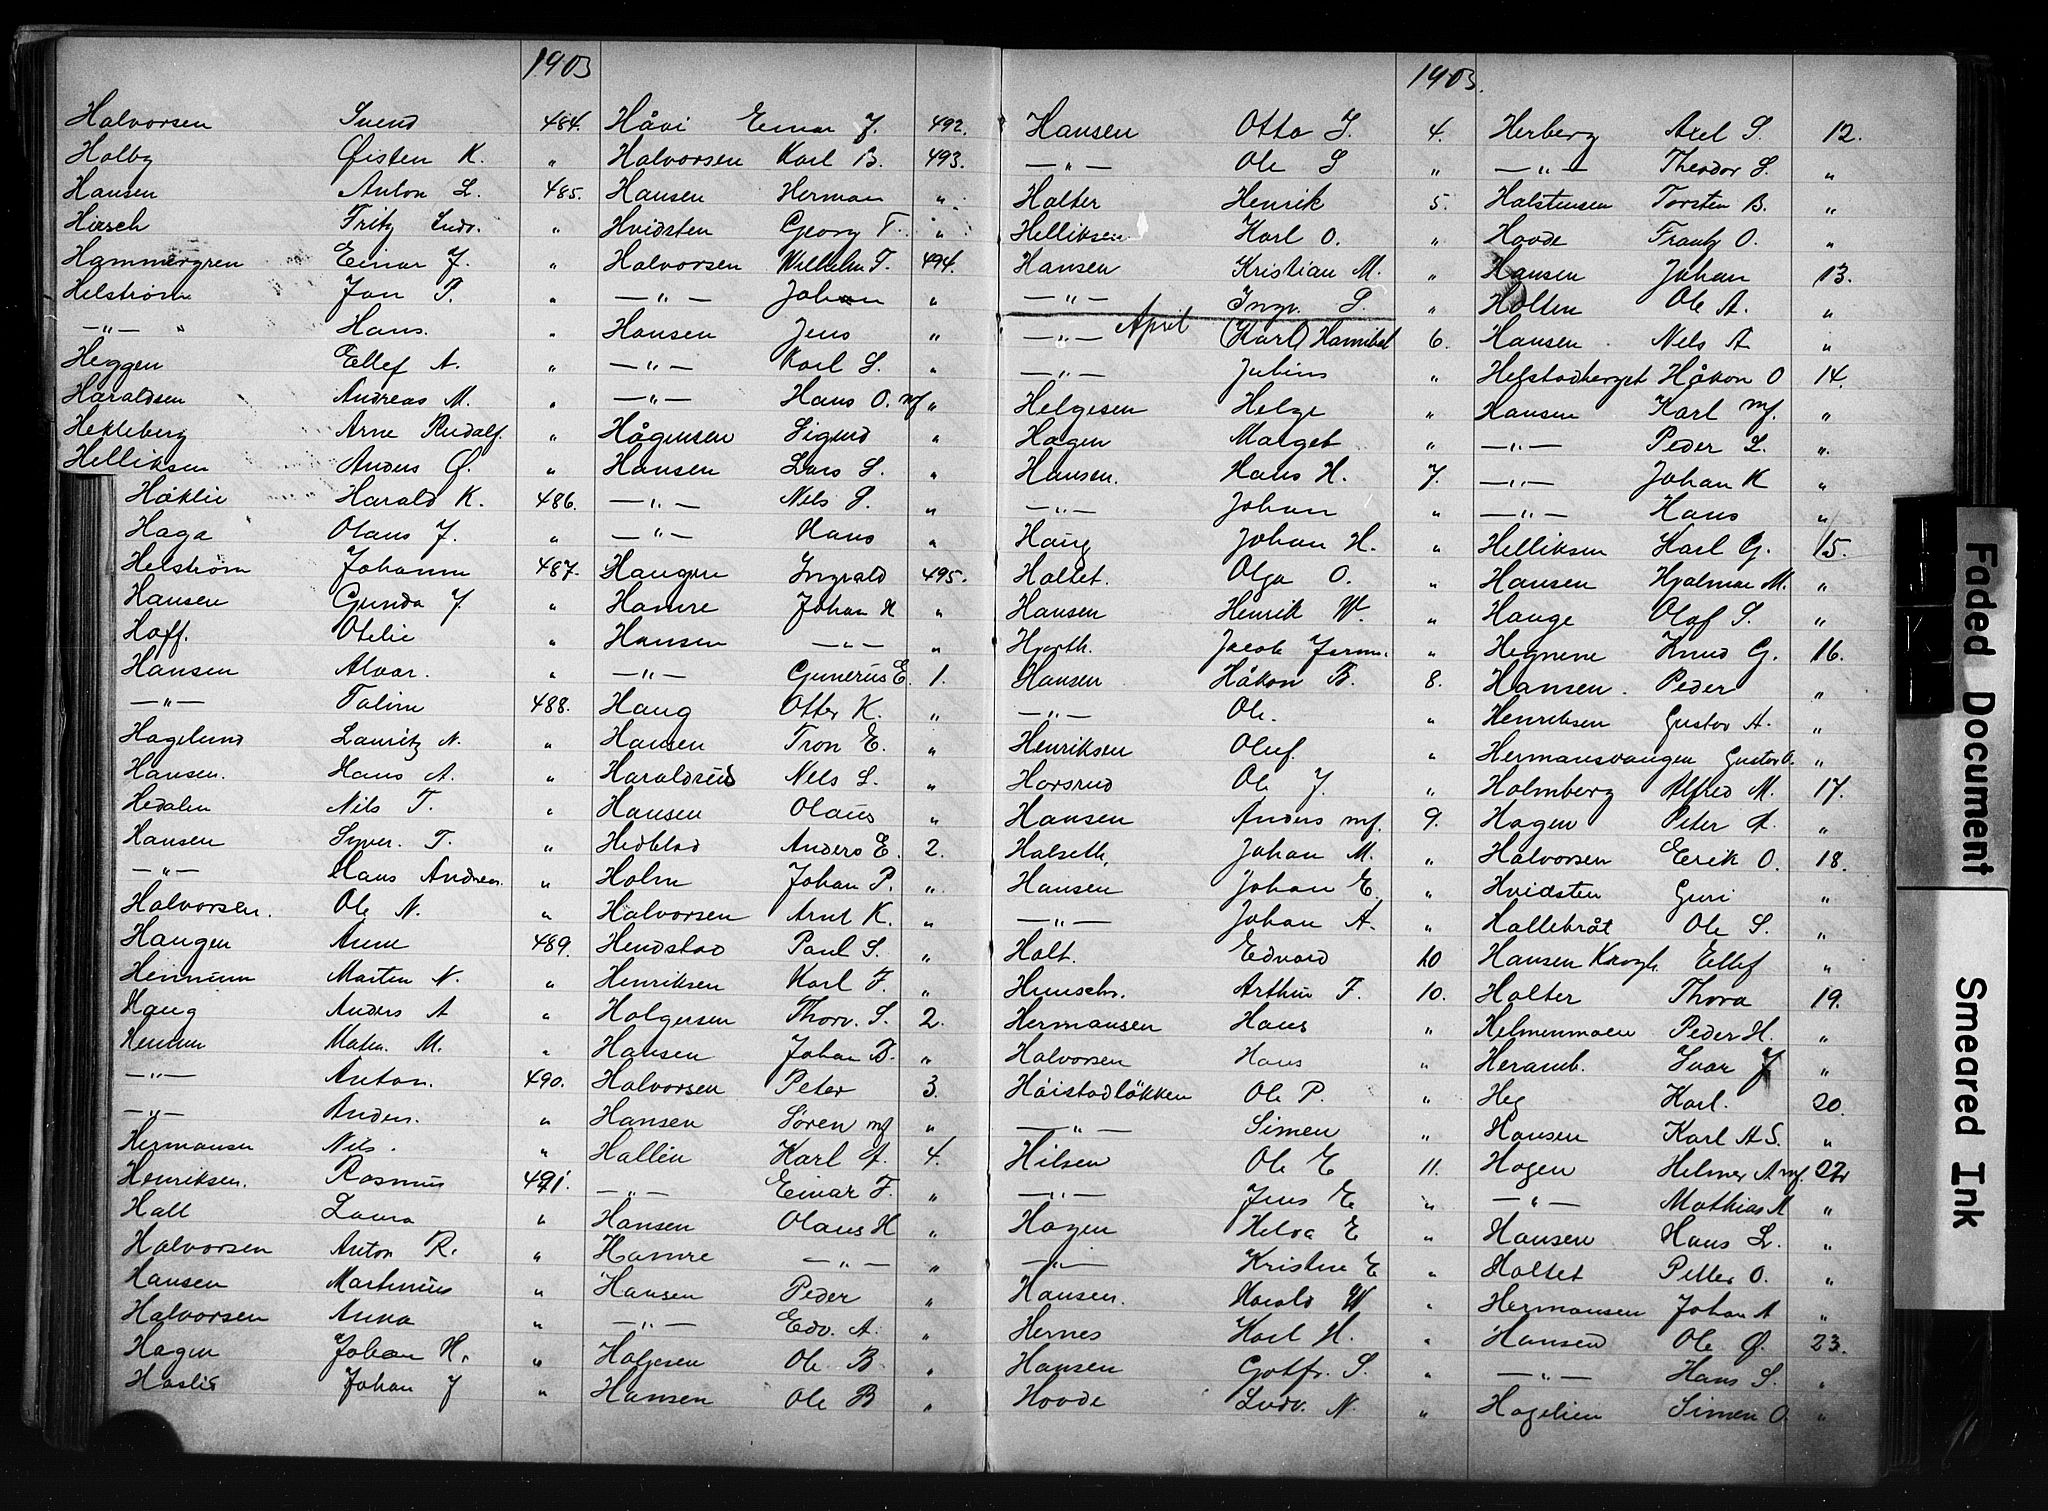 1903
Halvorsen Svend 484.
Holby Øisten K. "
Hansen Anton L. 485.
Hirsch Fritz Ludv. "
Hammergren Einar J. "
Helstrøm Jon P. "
—"— Hans. "
Heggen Ellef A. "
Haraldsen Andreas M. "
Hekleberg Arne Rudolf. "
Helliksen Anders Ø. "
Haklie Harald K. 486.
Haga Olaus J. "
Helstrøm Johanne 487.
Hansen Gunda J. "
Hoff. Otelie "
Hansen Alvar. "
—"— Taline 488.
Hagelund Lauritz N. "
Hansen. Hans A. "
Hedalen Nils T. "
Hansen Syver. T. "
—"— Hans Andreas. "
Halvorsen. Ole N. "
Haugen Anne 489.
Hennum Marten N. "
Haug Anders A "
Hennum Maten. M. "
—"— Anton. 490.
—"— Anders. "
Hermansen Nils. "
Henriksen. Rasmus 491.
Hall Laura "
Halvorsen Anton R. "
Hansen Martinius "
Halvorsen Anna "
Hagen Johan H. "
Haslie Johan J "
Håvi Einar J. 492.
Halvorsen Karl B. 493.
Hansen Herman "
Hvidsten Georg T. "
Halvorsen Wilhelm T. 494.
—"— Johan "
Hansen Jens "
—"— Karl S. "
—"— Hans O. mf "
Hågensen Sigurd "
Hansen Lars S. "
—"— Nils P. "
—"— Hans "
Haugen Ingvald 495.
Hamre Johan H "
Hansen —"— "
—"— Gunerius E. 1.
Haug Otter K. "
Hansen Tron E. "
Haraldsrud Nels S. "
Hansen Olaus "
Hedblad Anders E. 2.
Holm Johan P. "
Halvorsen Arnt K. "
Hendstad Paul S. "
Henriksen Karl F. "
Holgersen Thorv. S. 2.
Hansen Johan D. "
Halvorsen Peter 3.
Hansen Søren mf "
Hallin Karl A. 4.
—"— Einar F. "
Hansen Olaus H "
Hamre —"— "
Hansen Peder "
—"— Edv. A. "
Holgersen Ole B "
Hansen Ole B "
1903.
Hansen Otto J. 4.
—"— Ole S "
Halter Henrik 5.
Helliksen Karl O. "
Hansen Kristian M. "
—"— Ingv. P. "
April
—"— (Karl) Hannibal 6.
—"— Julius "
Helgesen Helge "
Hagen Marget "
Hansen. Hans H. 7.
—"— Johan "
Haug Johan H. "
Haltet. Olga O. "
Hansen Henrik W. "
Hjorth. Jacob "
Hansen Håkon B. 8.
—"— Ole. "
Henriksen Oluf. "
Horsrud Ole J "
Hansen Anders mf. 9.
Halseth. Johan M. "
Hansen Johan E. "
—"— Johan A. "
Holt. Edvard 10
Arthur F. 10.
Hermansen Hans "
Halvorsen Hans "
Høistadløkken Ole P. "
—"— Simen "
Hilsen Ole E 11.
—"— Jens E "
Hagen Helva E "
—"— Kristine E "
Hansen. Harald W "
Hernes Karl H. "
Hansen Gotfr. S. "
Hovde Ludv. N. "
Herberg Axel S. 12.
—"— Theodor S. "
Halstensen Torsten B. "
Hovde Frantz O. "
Hansen Johan 13.
Holten Ole A. "
Hansen. Nels A "
Helstadberget Håkon O 14.
Hansen Karl mf. "
—"— Peder L. "
—"— Johan K "
—"— Hans "
Helliksen Karl G. 15.
Hansen Hjalmar M. "
Hauge Olaf S. "
Hegnene Knud G. 16.
Hansen. Peder "
Henriksen Gustav A. "
Hermansvangen Gustav O. "
Holmberg Alfred M. 17.
Hagen Peter A. "
Halvorsen Erik O. 18.
Hvidsten Guri "
Hallebråt Ole S. "
Hansen Krogh. Ellef "
Halter Thora 19.
Helmenmoen Peder H. "
Heramb. Ivar J "
Heg Karl. 20.
Hansen Karl A S. "
Hagen Helmer A mf. 22
—"— Mathias A "
Hansen Hans L. "
Haltet Petter O. "
Hermansen Johan A "
Hansen Ole Ø. 23.
—"— Hans S. "
Hagelien Simen O. "
Faded Document
Smeared Ink